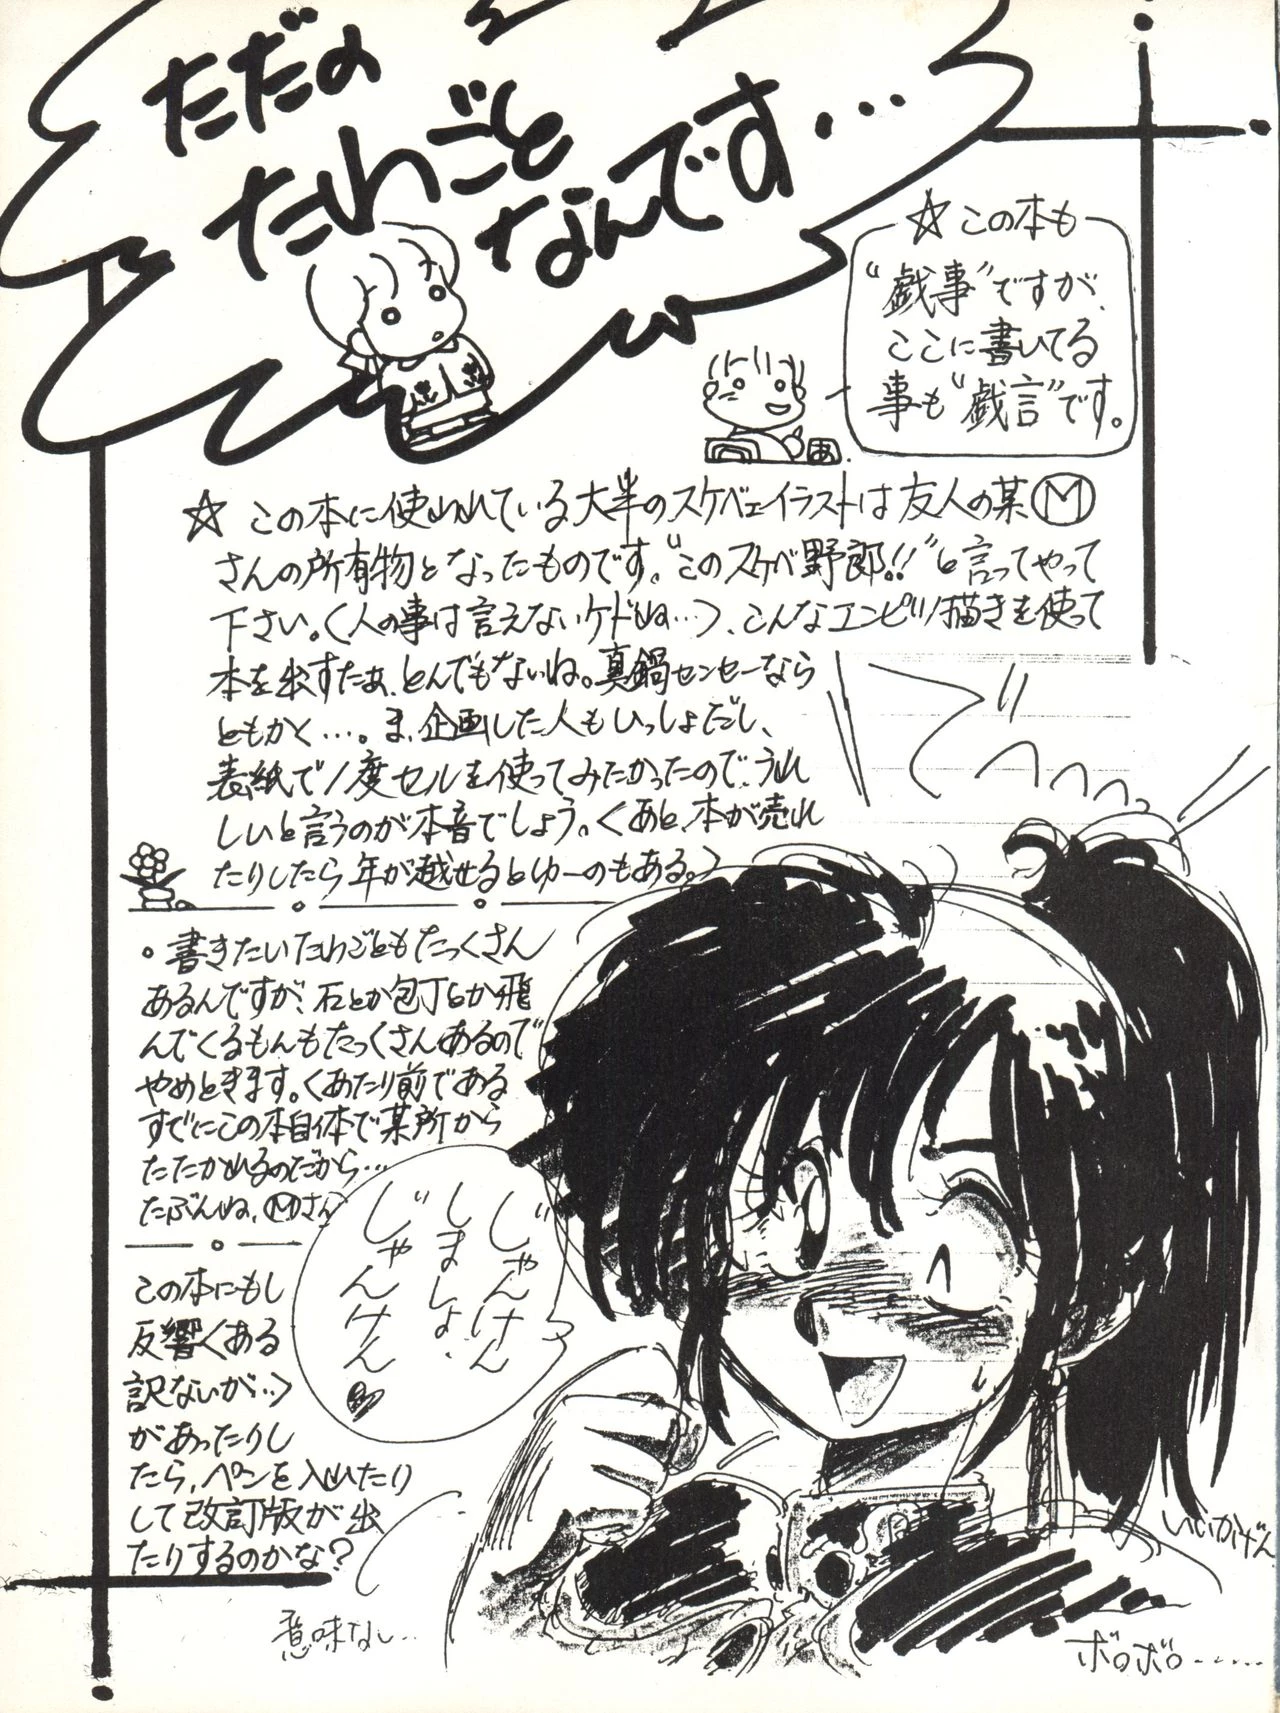 ただの
たわごと
なんです…
☆この本も
“戯事”ですが、
ここに書いてる
事も“戯言”です。
☆この本に使われている大半のスケベェイラストは友人の某Ⓜ
さんの所有物となったものです。“このスケベ野郎!!”と言ってやって
下さい。〈人の事は言えないケドね…〉、こんなエンピツ描きを使って
本を出すたぁ、とんでもないね。真鍋センセーなら
ともかく…。ま、企画した人もいっしょだし、
表紙で1度セルを使ってみたかったので、うれ
しいと言うのが本音でしょう。〈あと、本が売れ
たりしたら年が越せるとゆーのもある。〉
・書きたいたわごともたっくさん
あるんですが、石とか包丁とか飛
んでくるもんもたっくさんあるので
やめときます。〈あたり前である
すでにこの本自体で某所から
たたかれるのだから…
たぶんね、Ⓜさん
この本にもし
反響〈ある
訳ないが…〉
があったりし
たら、ペンを入れたり
して改訂版が出
たりするのかな?
じゃんけん
しましょ、
じゃんけん♥
で
へへへへ
いいかげん
意味なし…
ボロボロ……